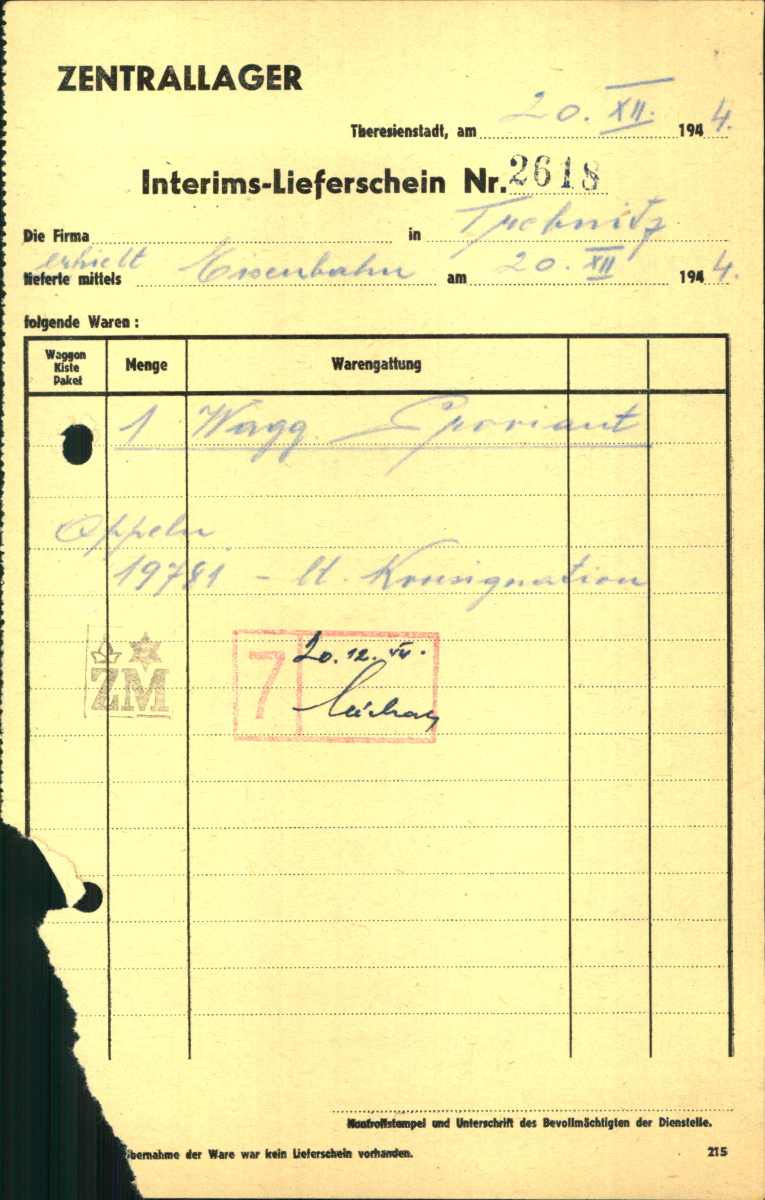 ZENTRALLAGER
Theresienstadt, am 20. XII. 1944.
Interims-Lieferschein Nr. 2618
Die Firma in Trebnitz
erhielt
lieferte mittels Eisenbahn am 20. XII 1944.
folgende Waren :
Waggon Kiste Paket Menge Warengattung
1 Wagg. Proviant
Oppeln
19781 - lt. Konsignation
ZM
7 20. 12.
Kontrollstempel und Unterschrift des Bevollmächtigten der Dienstelle.
bernahme der Ware war kein Lieferschein vorhanden.
215